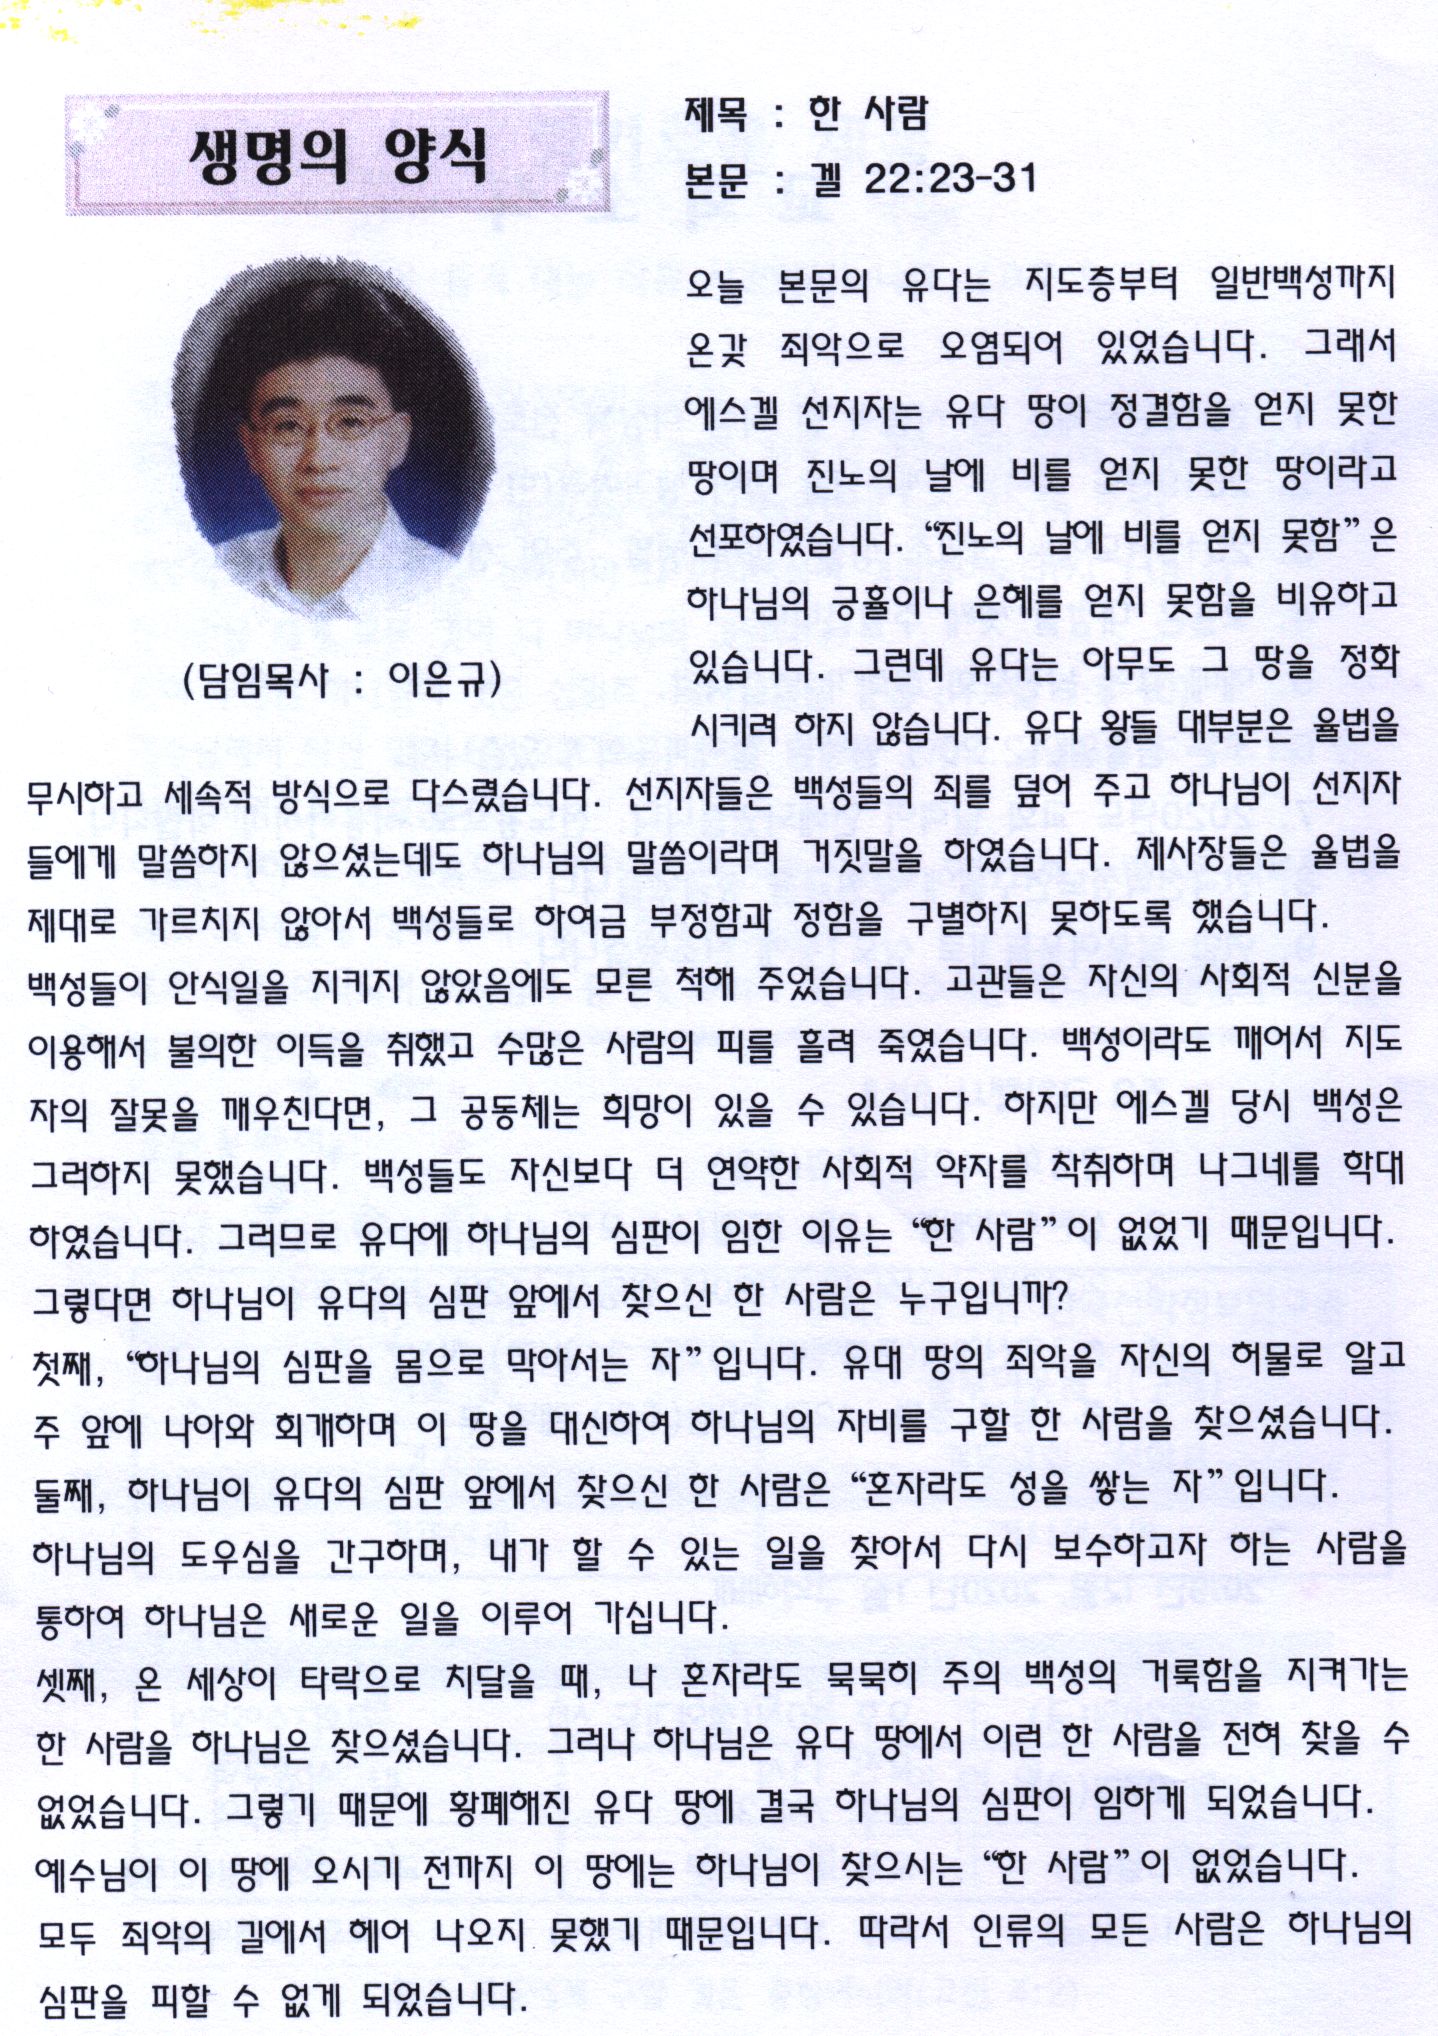 생명의 양식
제목 : 한 사람
본문 : 겔 22:23-31
(담임목사 : 이은규)
오늘 본문의 유다는 지도층부터 일반백성까지
온갖 죄악으로 오염되어 있었습니다. 그래서
에스겔 선지자는 유다 땅이 정결함을 얻지 못한
땅이며 진노의 날에 비를 얻지 못한 땅이라고
선포하였습니다. “진노의 날에 비를 얻지 못함”은
하나님의 긍휼이나 은혜를 얻지 못함을 비유하고
있습니다. 그런데 유다는 아무도 그 땅을 정화
시키려 하지 않습니다. 유다 왕들 대부분은 율법을
무시하고 세속적 방식으로 다스렸습니다. 선지자들은 백성들의 죄를 덮어 주고 하나님이 선지자
들에게 말씀하지 않으셨는데도 하나님의 말씀이라며 거짓말을 하였습니다. 제사장들은 율법을
제대로 가르치지 않아서 백성들로 하여금 부정함과 정함을 구별하지 못하도록 했습니다.
백성들이 안식일을 지키지 않았음에도 모른 척해 주었습니다. 고관들은 자신의 사회적 신분을
이용해서 불의한 이득을 취했고 수많은 사람의 피를 흘려 죽였습니다. 백성이라도 깨어서 지도
자의 잘못을 깨우친다면, 그 공동체는 희망이 있을 수 있습니다. 하지만 에스겔 당시 백성은
그러하지 못했습니다. 백성들도 자신보다 더 연약한 사회적 약자를 착취하며 나그네를 학대
하였습니다. 그러므로 유다에 하나님의 심판이 임한 이유는 “한 사람”이 없었기 때문입니다.
그렇다면 하나님이 유다의 심판 앞에서 찾으신 한 사람은 누구입니까?
첫째, “하나님의 심판을 몸으로 막아서는 자”입니다. 유대 땅의 죄악을 자신의 허물로 알고
주 앞에 나아와 회개하며 이 땅을 대신하여 하나님의 자비를 구할 한 사람을 찾으셨습니다.
둘째, 하나님이 유다의 심판 앞에서 찾으신 한 사람은 “혼자라도 성을 쌓는 자”입니다.
하나님의 도우심을 간구하며, 내가 할 수 있는 일을 찾아서 다시 보수하고자 하는 사람을
통하여 하나님은 새로운 일을 이루어 가십니다.
셋째, 온 세상이 타락으로 치달을 때, 나 혼자라도 묵묵히 주의 백성의 거룩함을 지켜가는
한 사람을 하나님은 찾으셨습니다. 그러나 하나님은 유다 땅에서 이런 한 사람을 전혀 찾을 수
없었습니다. 그렇기 때문에 황폐해진 유다 땅에 결국 하나님의 심판이 임하게 되었습니다.
예수님이 이 땅에 오시기 전까지 이 땅에는 하나님이 찾으시는 “한 사람”이 없었습니다.
모두 죄악의 길에서 헤어 나오지 못했기 때문입니다. 따라서 인류의 모든 사람은 하나님의
심판을 피할 수 없게 되었습니다.